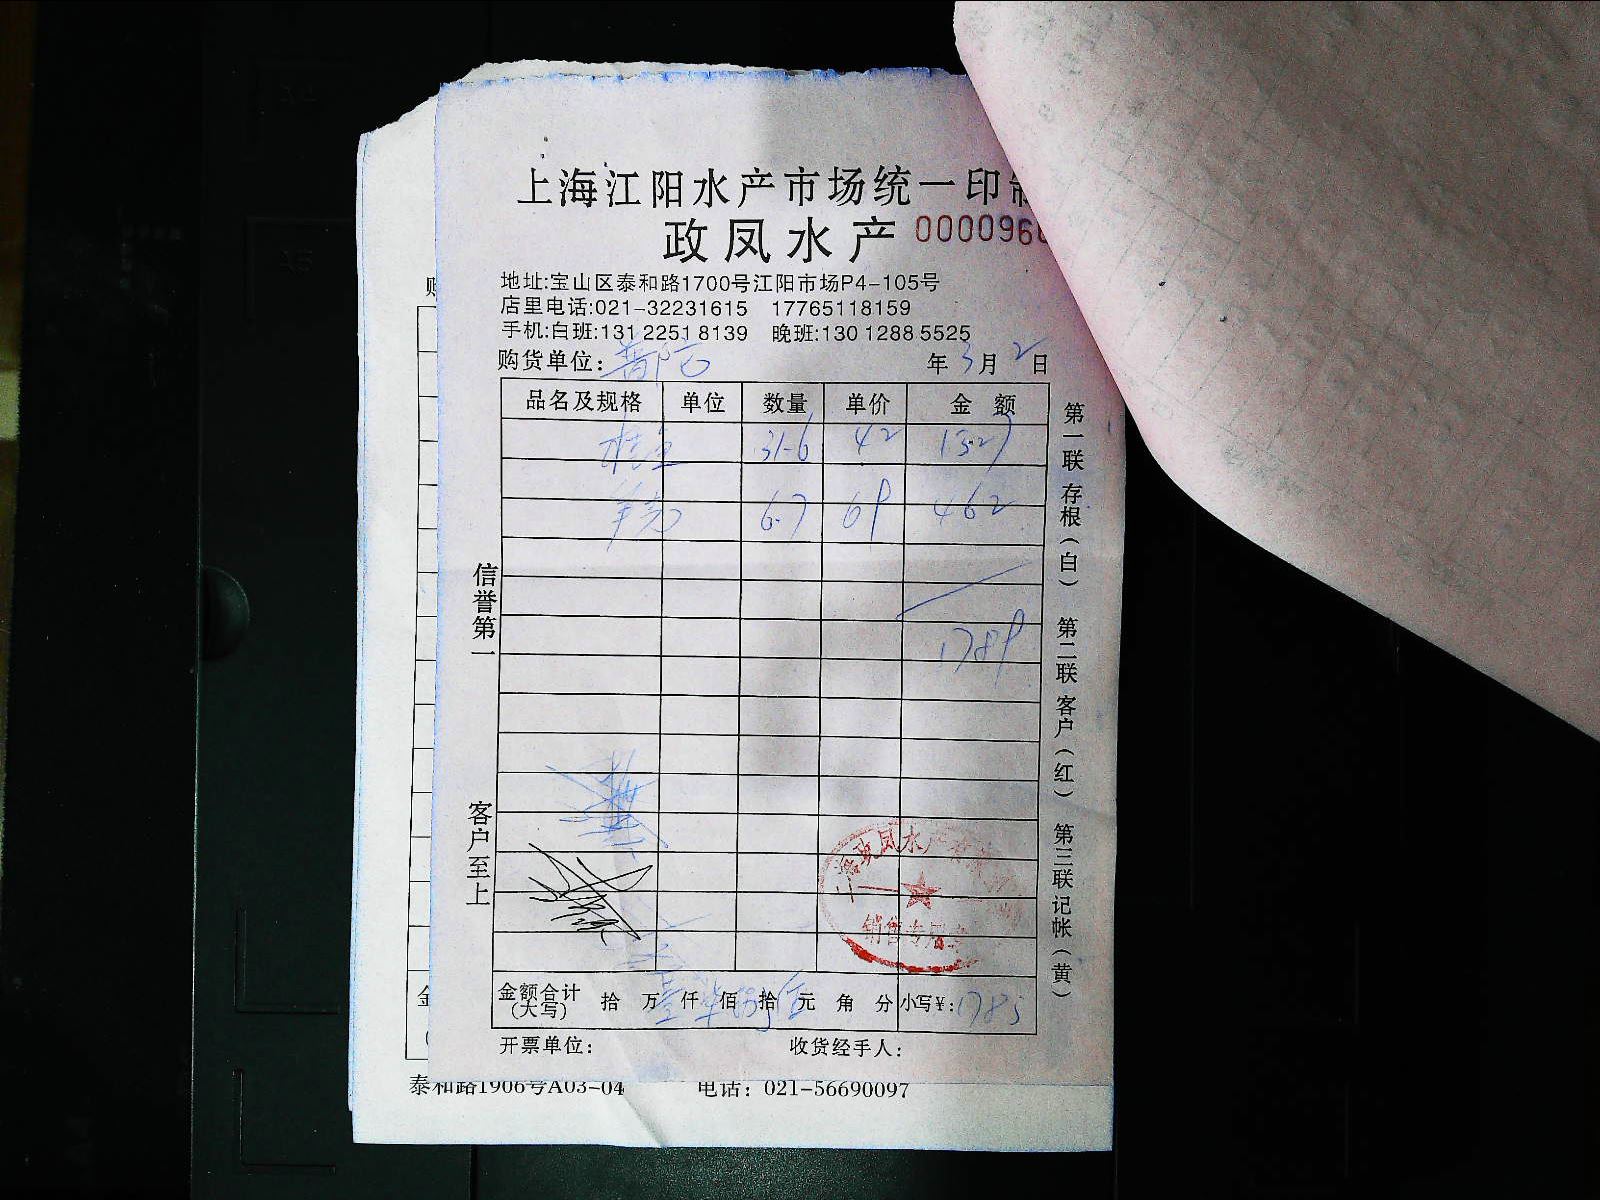 上海江阳水产市场统一印
政凤水产 000096
地址:宝山区泰和路1700号江阳市场P4-105号
店里电话:021-32231615 17765118159
手机:白班:131 2251 8139 晚班:130 1288 5525
购货单位:普陀 年3月2日
品名及规格 单位 数量 单价 金额
31.6 42 1327
6.7 69 462
1789
信誉第一
客户至上
第一联存根(白) 第二联客户(红) 第三联记帐(黄)
政凤水产
销售专用章
金额合计(大写) 拾 万 仟 佰 拾 元 角 分 小写¥:1785
开票单位: 收货经手人:
泰和路1906号A03-04 电话: 021-56690097